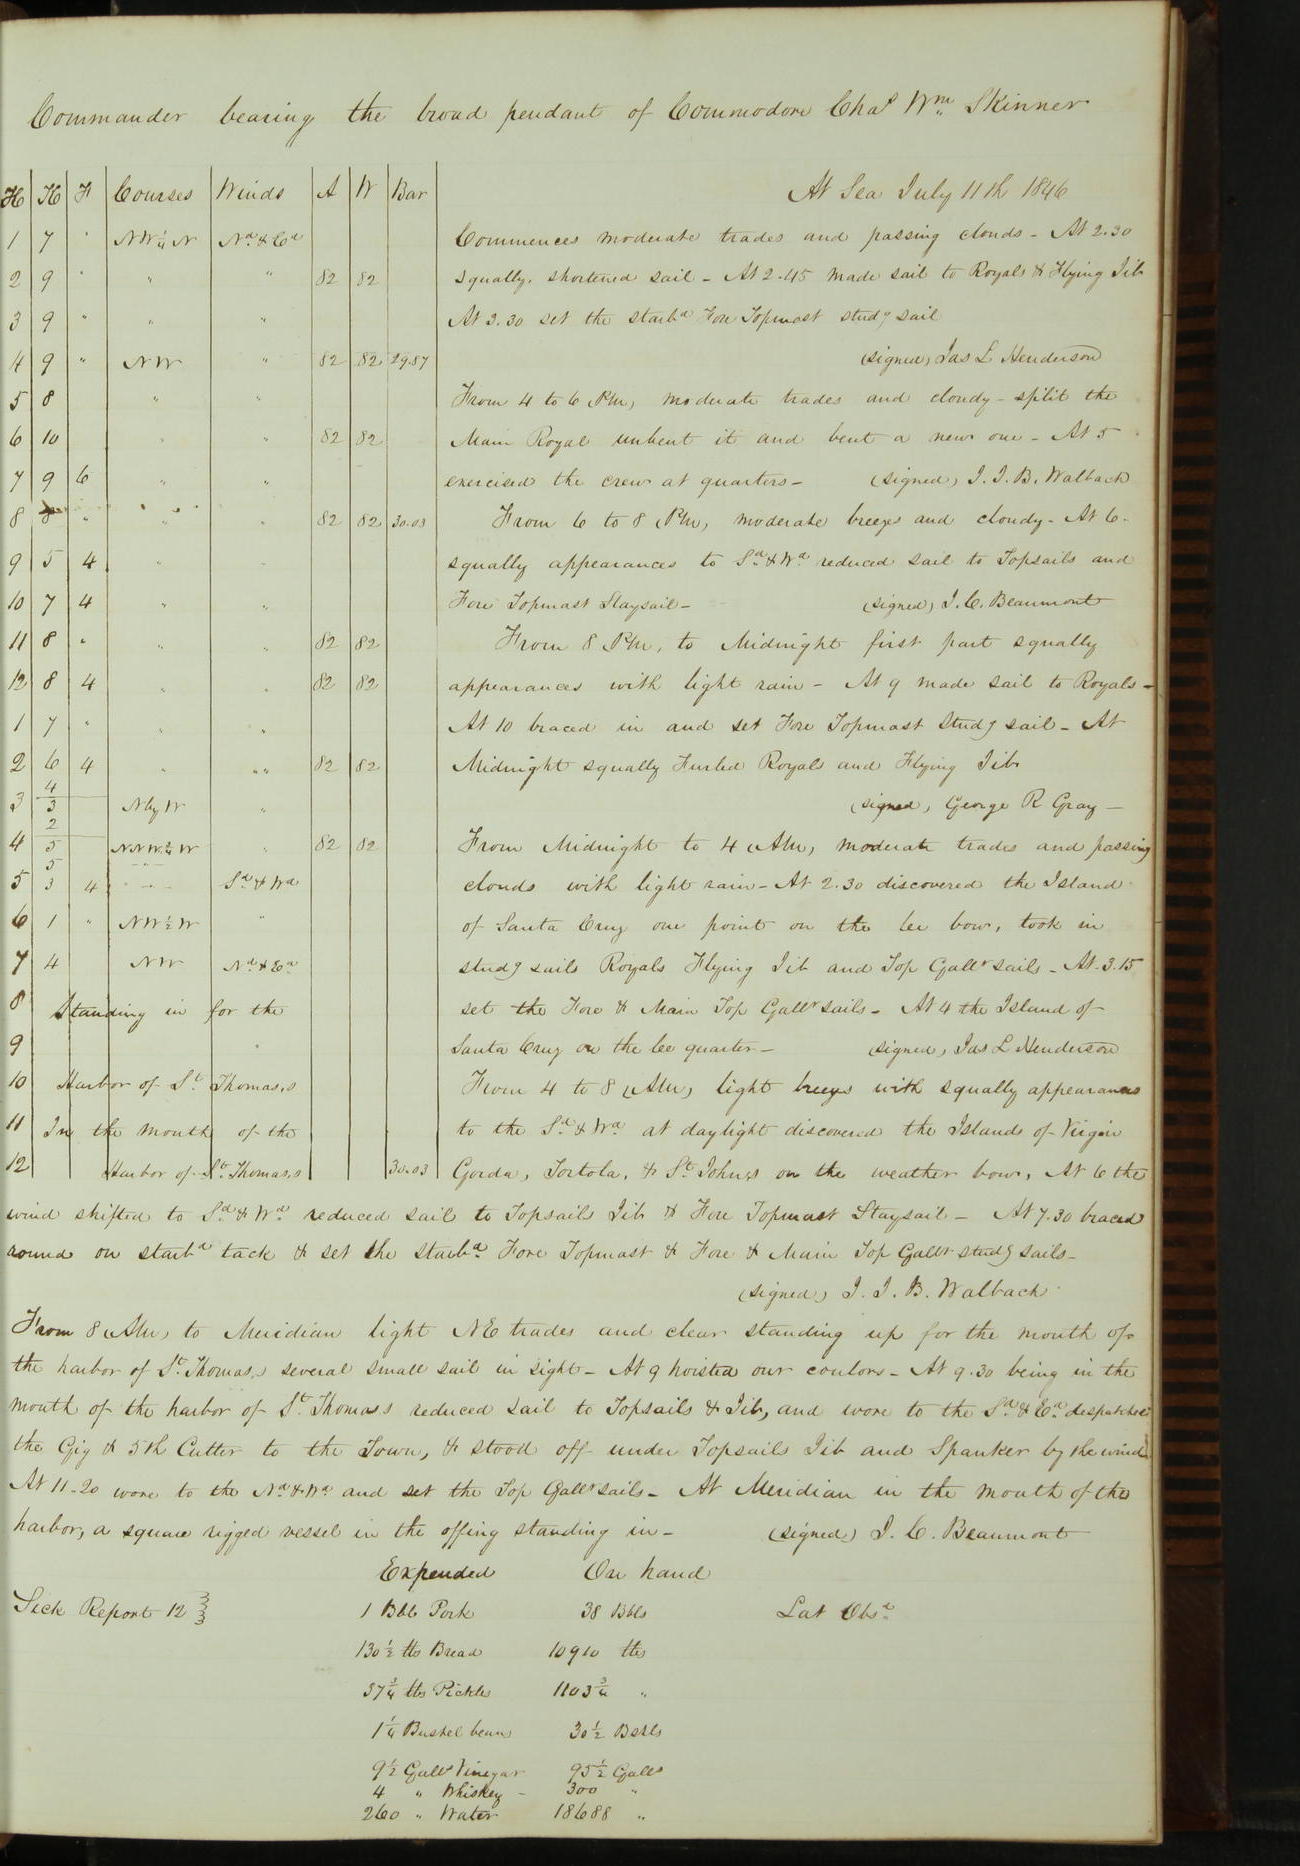 Commander bearing the broad pendant of Commodore Chas Wm Skinner
H K F Courses Winds A W Bar
At Sea July 11th 1846
1 7 " NW¼N Nd & Ed
Commences moderate trades and passing clouds - At 2.30
2 9 " " " 82 82
squally, shortened sail - At 2.45 made sail to Royals & Flying Jib
3 9 " " "
At 3.30 set the starbd Fore Topmast studg sail
4 9 " NW " 82 82 29.87
(signed) Jas L Henderson
5 8 " "
From 4 to 6 PM, moderate trades and cloudy - split the
6 10 " " 82 82
Main Royal unbent it and bent a new one - At 5
7 9 6 " "
exercised the crew at quarters - (signed) J. J. B. Walbach
8 8 " " " 82 82 30.03
From 6 to 8 PM, moderate breezes and cloudy - At 6.
9 5 4 " "
squally appearances to Sd & Wd reduced sail to Topsails and
10 7 4 " "
Fore Topmast Staysail - (signed) J. C. Beaumont
11 8 " " " 82 82
From 8 PM, to Midnight first part squally
12 8 4 " " 82 82
appearances with light rain - At 9 made sail to Royals -
1 7 " " "
At 10 braced in and set Fore Topmast Studg sail - At
2 6 4 " " " 82 82
Midnight squally Furled Royals and Flying Jib
3 4/3 N by W "
(signed, George R Gray -
4 2/5 NNW½W " 82 82
From Midnight to 4 AM, moderate trades and passing
5 5/3 4 " Sd & Wd
clouds with light rain - At 2.30 discovered the Island
6 1 " NW½W "
of Santa Cruz one point on the lee bow, took in
7 4 NW Nd & Ed
studg sails Royals Flying Jib and Top Gallt sails - At 3.15
8 Standing in for the
set the Fore & Main Top Gallt sails - At 4 the Island of
9 "
Santa Cruz on the lee quarter - (signed, Jas L Henderson
10 Harbor of St Thomas,s
From 4 to 8 AM, light breezes with squally appearances
11 In the mouth of the
to the Sd & Wd at daylight discovered the Islands of Virgin
12 Harbor of St Thomas,s 30.03
Gorda, Tortola, & St Johns on the weather bow, At 6 the
wind shifted to Sd & Wd reduced sail to Topsails Jib & Fore Topmast Staysail - At 7.30 braced
round on starbd tack & set the starbd Fore Topmast & Fore & Main Top Gallt studg sails -
(signed) J. J. B. Walbach
From 8 AM, to Meridian light NE trades and clear standing up for the mouth of
the harbor of St Thomas,s several small sail in sight - At 9 hoisted our coulors - At 9.30 being in the
mouth of the harbor of St Thomas,s reduced sail to Topsails & Jib, and wore to the Sd & Ed despatched
the Gig & 5th Cutter to the Town, & stood off under Topsails Jib and Spanker by the wind
At 11-20 wore to the Nd & Wd and set the Top Gallt sails - At Meridian in the mouth of the
harbor, a square rigged vessel in the offing standing in - (signed) J. C. Beaumont
Expended On hand
Sick Report 12 1 Bbl Pork 38 Bbls Lat Obsd
130½ lbs Bread 10910 lbs
37¾ lbs Pickles 1103¾ "
1¼ Bushel beans 30½ Bshls
9½ Galls Vinegar 95½ Galls
4 " Whiskey - 300 "
260 " Water 18688 "